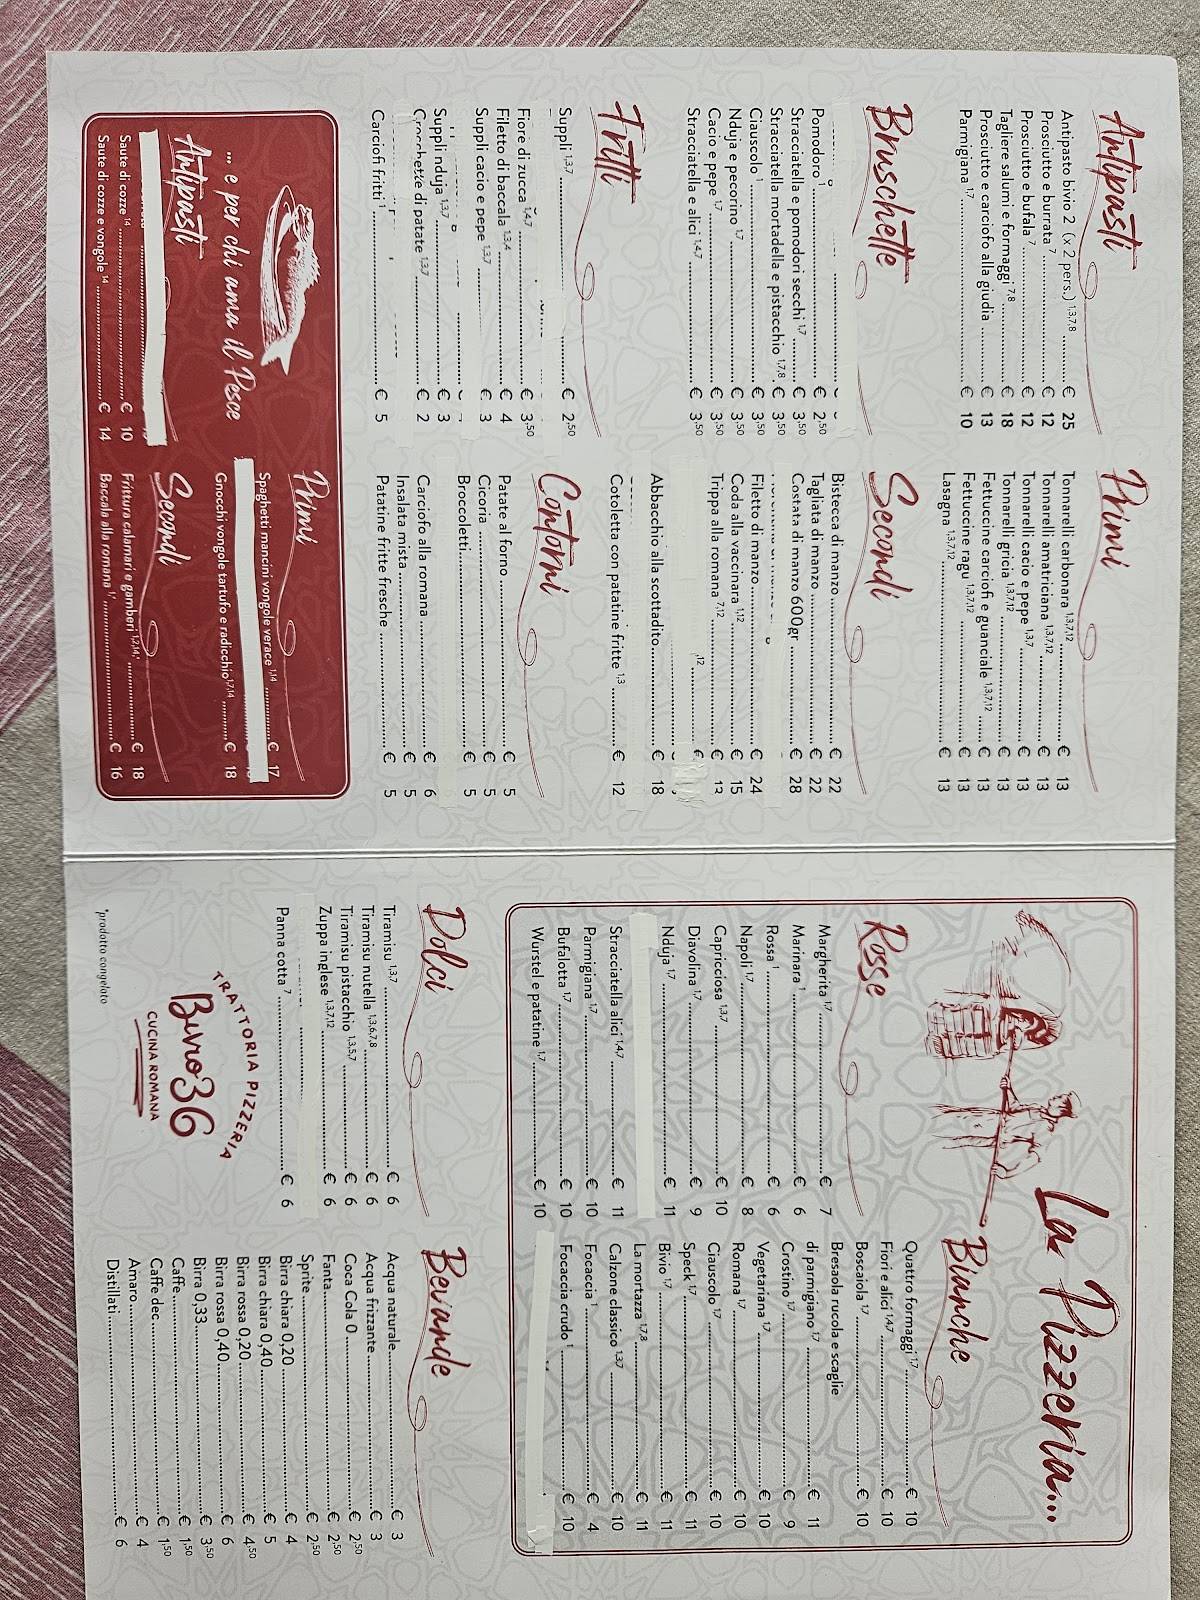 Antipasti
Antipasto bivio 2 (x 2 pers.) 1,3,7,8 € 25
Prosciutto e burrata 7 € 12
Prosciutto e bufala 7 € 12
Tagliere salumi e formaggi 7,8 € 18
Prosciutto e carciofo alla giudia € 13
Parmigiana 1,7 € 10
Bruschette
Pomodoro 1 € 2,50
Stracciatella e pomodori secchi 1,7 € 3,50
Stracciatella mortadella e pistacchio 1,7,8 € 3,50
Ciauscolo 1 € 3,50
Nduja e pecorino 1,7 € 3,50
Cacio e pepe 1,7 € 3,50
Stracciatella e alici 1,4,7 € 3,50
Fritti
Suppli 1,3,7 € 2,50
Fiore di zucca 1,4,7 € 3,50
Filetto di baccala 1,3,4 € 4
Suppli cacio e pepe 1,3,7 € 3
Suppli nduja 1,3,7 € 3
Crocchette di patate 1,3,7 € 2
Carciofi fritti 1 € 5
... e per chi ama il Pesce
Antipasti
Saute di cozze 14 € 10
Saute di cozze e vongole 14 € 14
Primi
Tonnarelli carbonara 1,3,7,12 € 13
Tonnarelli amatriciana 1,3,7,12 € 13
Tonnarelli cacio e pepe 1,3,7 € 13
Tonnarelli gricia 1,3,7,12 € 13
Fettuccine carciofi e guanciale 1,3,7,12 € 13
Fettuccine ragu 1,3,7,12 € 13
Lasagna 1,3,7,12 € 13
Secondi
Bistecca di manzo € 22
Tagliata di manzo € 22
Costata di manzo 600gr € 28
Filetto di manzo € 24
Coda alla vaccinara 1,12 € 15
Trippa alla romana 7,12 € 13
12 €
Abbacchio alla scottadito € 18
Cotoletta con patatine fritte 1,3 € 12
Contorni
Patate al forno € 5
Cicoria € 5
Broccoletti € 5
Carciofo alla romana € 6
Insalata mista € 5
Patatine fritte fresche € 5
Primi
Spaghetti mancini vongole verace 1,14 € 17
Gnocchi vongole tartufo e radicchio 1,7,14 € 18
Secondi
Frittura calamari e gamberi 1,2,14,* € 18
Baccala alla romana € 16
La Pizzeria...
Rosse
Margherita 1,7 € 7
Marinara 1 € 6
Rossa 1 € 6
Napoli 1,7 € 8
Capricciosa 1,3,7 € 10
Diavolina 1,7 € 9
Nduja 1,7 € 11
Stracciatella alici 1,4,7 € 11
Parmigiana 1,7 € 10
Bufalotta 1,7 € 10
Wurstel e patatine 1,7 € 10
Bianche
Quattro formaggi 1,7 € 10
Fiori e alici 1,4,7 € 10
Boscaiola 1,7 € 10
Bresaola rucola e scaglie
di parmigiano 1,7 € 11
Crostino 1,7 € 9
Vegetariana 1,7 € 10
Romana 1,7 € 10
Ciauscolo 1,7 € 10
Speck 1,7 € 11
Bivio 1,7 € 11
La mortazza 1,7,8 € 11
Calzone classico 1,3,7 € 10
Focaccia 1 € 4
Focaccia crudo 1 € 10
Dolci
Tiramisu 1,3,7 € 6
Tiramisu nutella 1,3,6,7,8 € 6
Tiramisu pistacchio 1,3,5,7 € 6
Zuppa inglese 1,3,7,12 € 6
Panna cotta 7 € 6
TRATTORIA PIZZERIA
Bivio36
CUCINA ROMANA
*prodotto congelato
Bevande
Acqua naturale € 3
Acqua frizzante € 3
Coca Cola 0 € 2,50
Fanta € 2,50
Sprite € 2,50
Birra chiara 0,20 € 4
Birra chiara 0,40 € 5
Birra rossa 0,20 € 4,50
Birra rossa 0,40 € 6
Birra 0,33 € 3,50
Caffe € 1,50
Caffe dec € 1,50
Amaro € 4
Distillati € 6